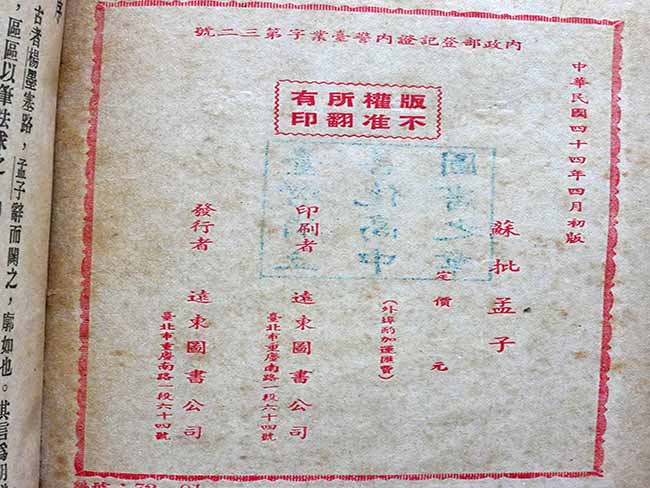 內政部登記證內警臺業字第三二號
中華民國四十四年四月初版
版權所有
不准翻印
蘇批孟子
定價　元
（外埠酌加運匯費）
印刷者　遠東圖書公司
臺北市重慶南路一段六十四號
發行者　遠東圖書公司
臺北市重慶南路一段六十四號
古者楊墨塞路，孟子辭而闢之，廓如也。其言爲
，區區以筆法求之